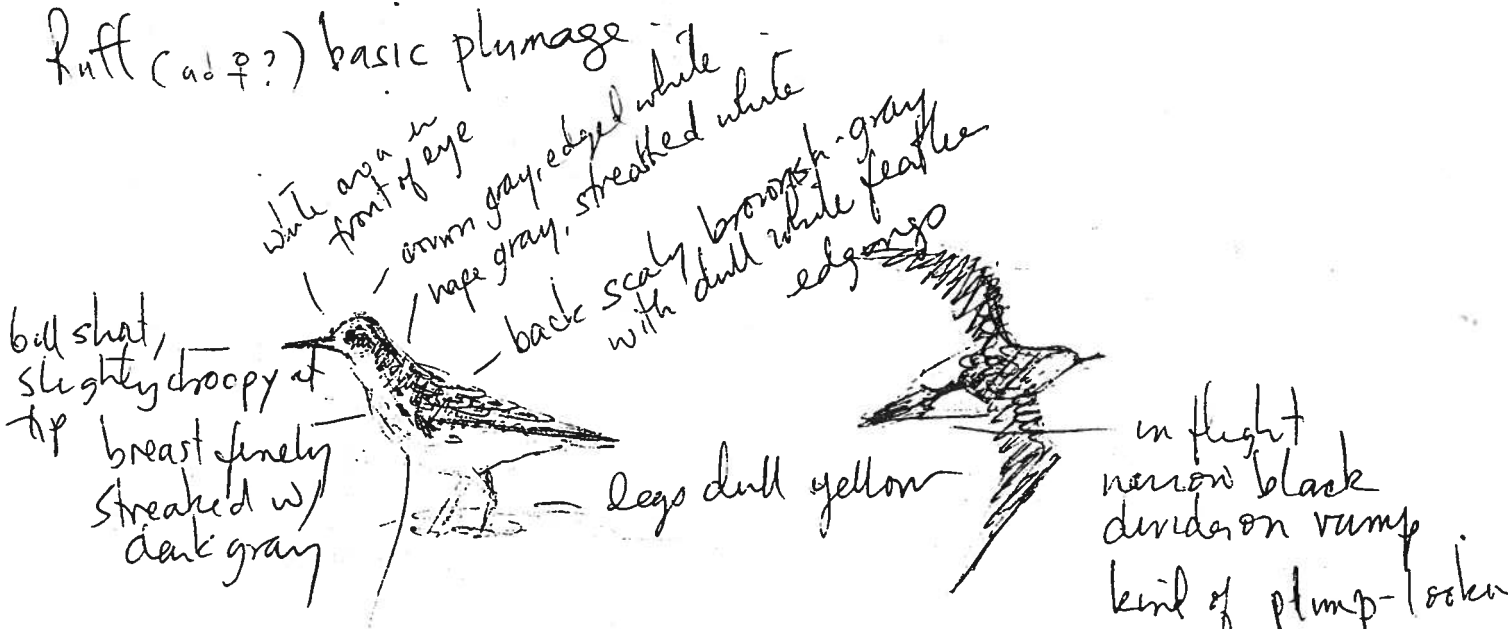 Ruff (ad ♀?) basic plumage
white area in
front of eye
crown gray, edged white
nape gray, streaked white
back scaly brownish-gray
with dull white feather
edgings
bill short,
slightly droopy at
tip
breast finely
streaked w/
dark gray
legs dull yellow
in flight
narrow black
divides on rump
kind of plump-lookin